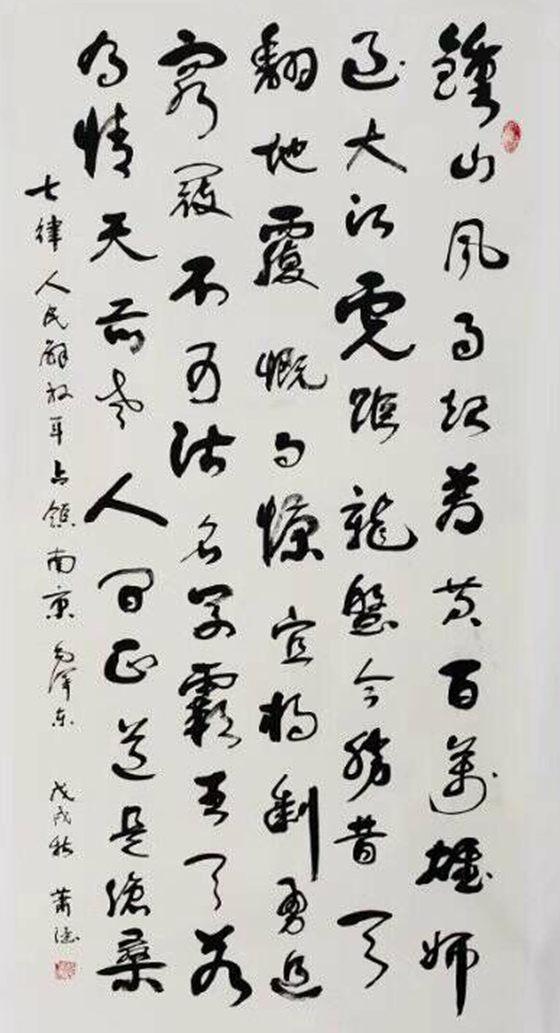 鍾山风雨起蒼黄百萬雄师
过大江虎踞龍盤今勝昔天
翻地覆慨而慷宜将剩勇追
窮寇不可沽名学霸王天若
有情天亦老人间正道是滄桑
七律人民解放军占领南京 毛泽东 戊戌秋 萧